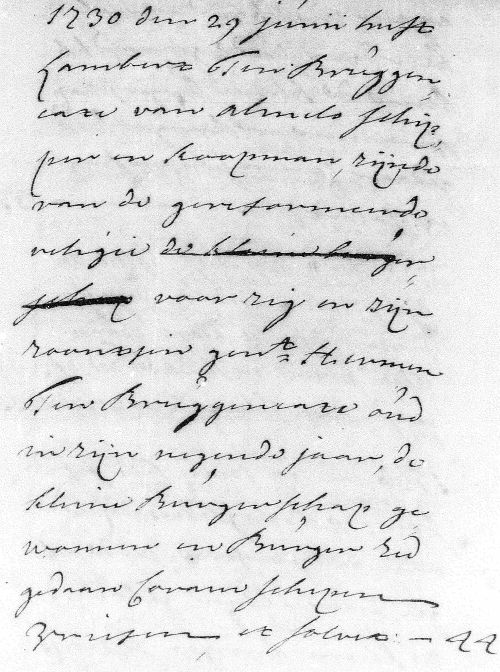 1730 den 29 junii heeft
Lambert Ten Brüggen
cate van almelo schip
per en koopman, zijnde
van de gereformeerde
religie de kleine bürger
schap voor zig en zijn
zoontjen gent. Hermen
Ten Brüggencate oüd
in zijn negende jaar, de
kleine Bürgerschap ge
wonnen en Bürger Eed
gedaan Coram schepen
et solvit. - 44